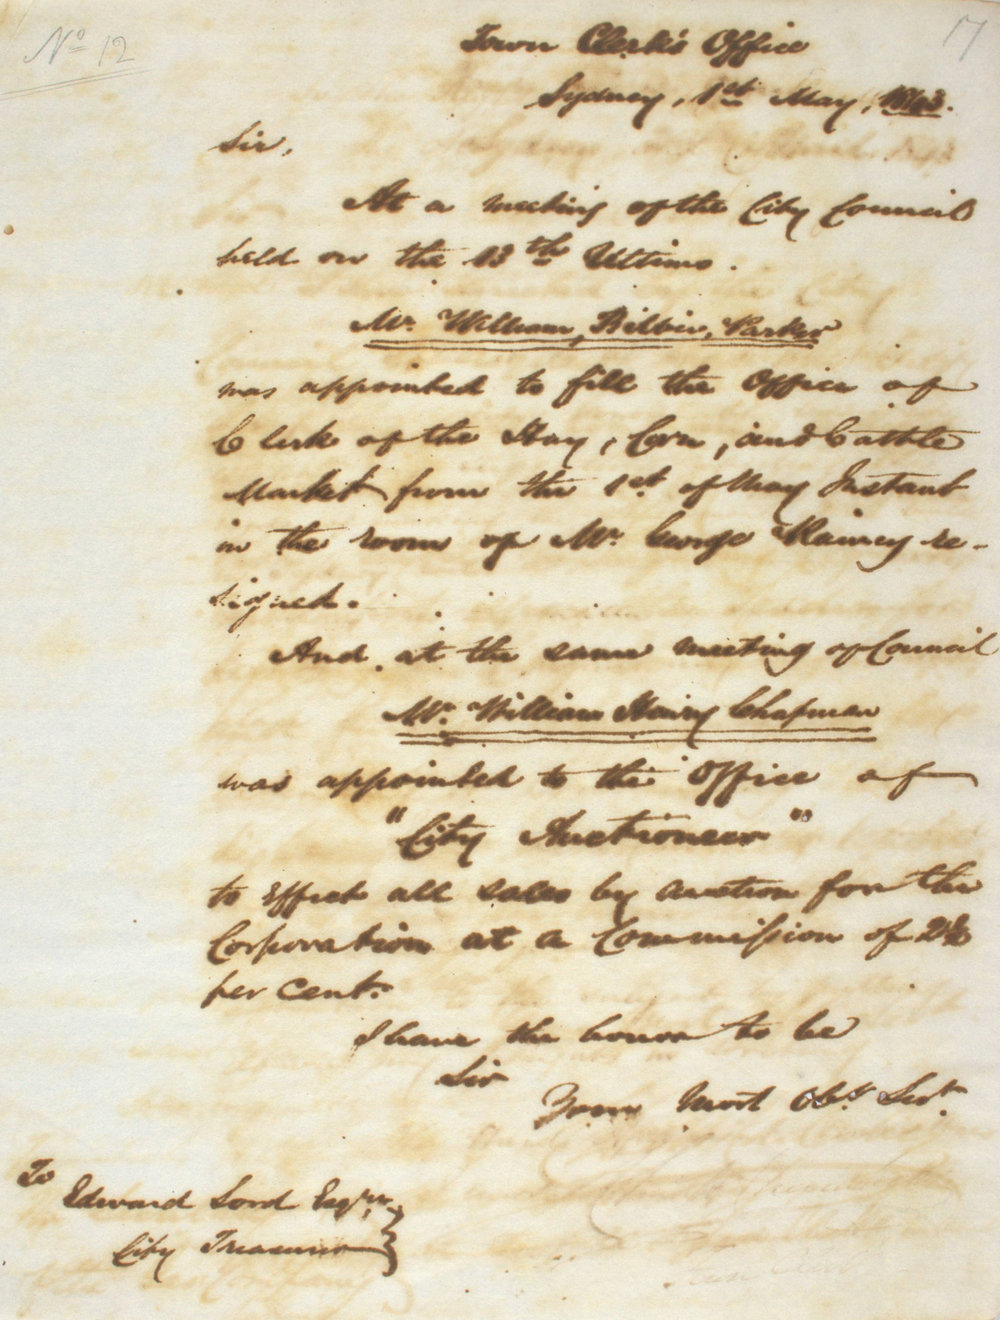 No 12
17
Town Clerk's Office
Sydney, 1st May, 1843.
Sir,
At a meeting of the City Council
held on the 13th Ultimo.
Mr. William, Parker
was appointed to fill the Office of
Clerk of the Hay, Corn, and Cattle
Market from the 1st of May Instant
in the room of Mr. George re-
signed.
And at the same meeting of Council
Mr. William Henry Chapman
was appointed to the Office of
"City Auctioneer"
to Effect all sales by auction for the
Corporation at a Commission of 2½
per Cent.
I have the honor to be
Sir
Your Most Obt. Servt.
To
Edward Lord Esqre.
City Treasurer